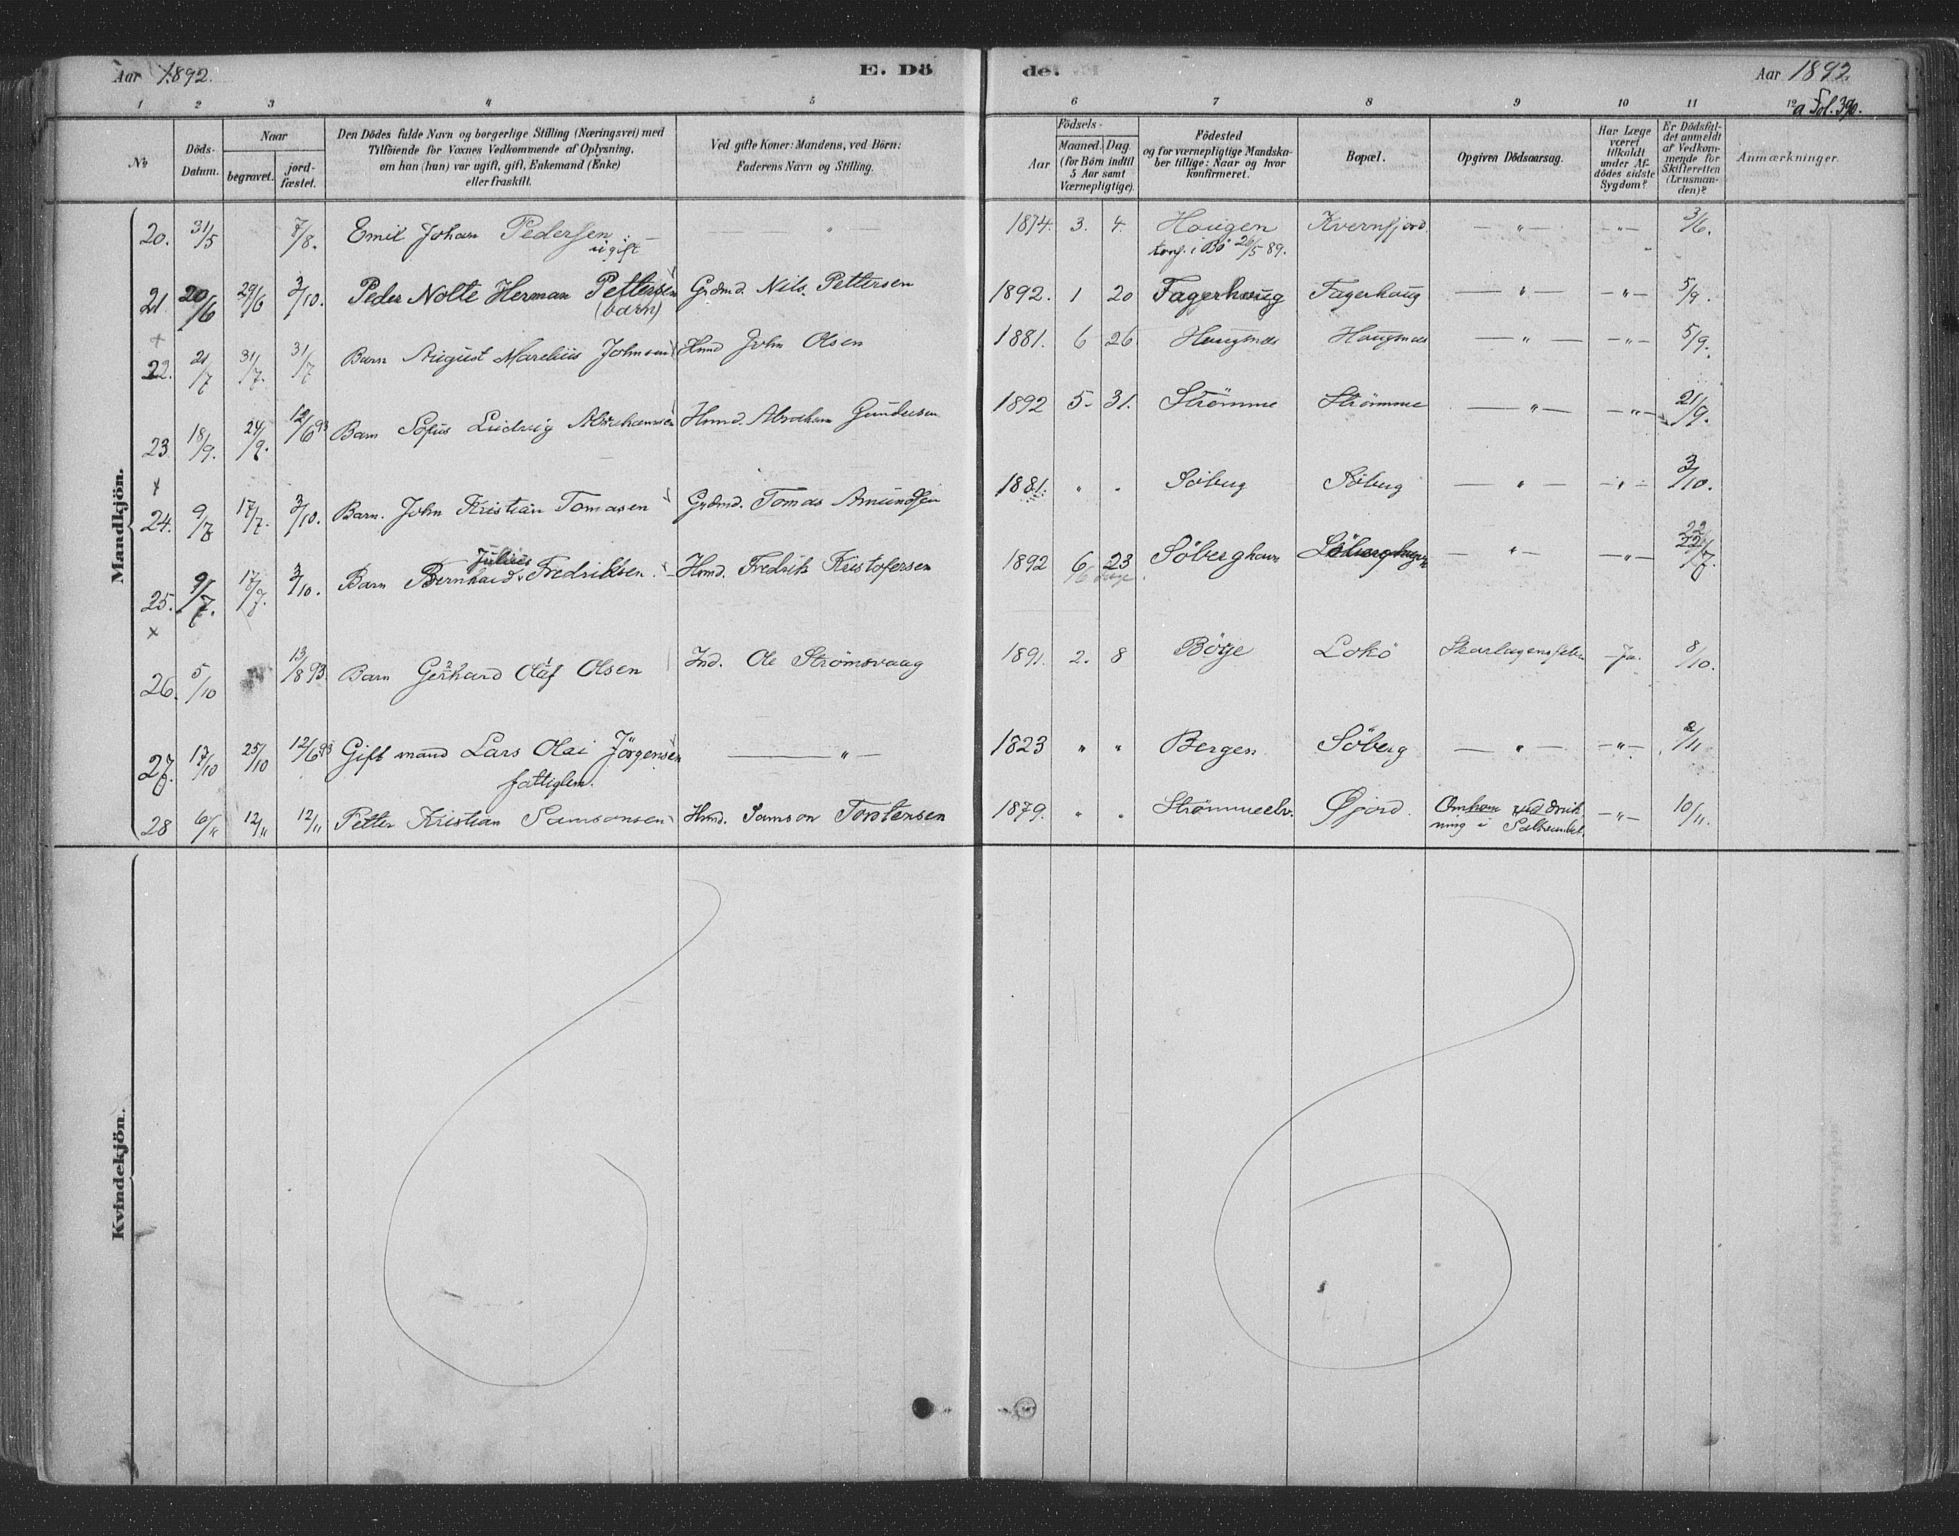 Aar 1892. E. Dö
de. Aar 1892.
a Fol. 390.
1 2 3 4 5 6 7 8 9 10 11 12
No
Döds-Datum.
Naar
begravet.
jord-fæstet.
Den Dödes fulde Navn og borgerlige Stilling (Næringsvei) med
Tilföiende for Voxnes Vedkommende af Oplysning,
om han (hun) var ugift, gift, Enkemand (Enke)
eller fraskilt.
Ved gifte Koner: Mandens, ved Börn:
Faderens Navn og Stilling.
Födsels-
Aar
Maaned. Dag.
(for Börn indtil
5 Aar samt
Værnepligtige).
Födested
og for værnepligtige Mandska-
ber tillige: Naar og hvor
konfirmeret.
Bopæl.
Opgiven Dödsaarsag.
Har Læge
været
tilkaldt
under Af-
dödes sidste
Sygdom?
Er Dödsfal-
det anmeldt
af Vedkom-
mende for
Skifteretten
(Lensman-
den)?
Anmærkninger.
Mandkjön.
20. 31/5 7/8. Emil Johan Pedersen — " 1874. 3. 4. Haugen Kvernfjord. — " — — " — 3/6.
ugift konf. i Bö 26/5 89.
21 20/6 29/6 3/10. Peder Nolte Herman Pettersen Grdmd. Nils Pettersen 1892. 1 20 Fagerhaug Fagerhaug — " — — " — 5/9.
(barn)
22. 21/7 31/7. 31/7 Barn August Marelius Johnsen Hmd John Olsen 1881. 6 26 Haugsnes Haugsnes — " — — " — 5/9.
23. 18/9. 24/9. 12/6 93 Barn Sofus Ludvig Abrahamsen Hmd. Abraham Gundersen 1892 5. 31. Strömme Strömme — " — — " — 21/9.
24. 9/7 17/7. 3/10. Barn. John Kristian Tomasen Grdmd. Tomas Amundsen 1881. " " Söberg Söberg — " — — " — 3/10.
Julius
25. 9/7. 17/7. 3/10. Barn Bernhard Fredriksen. Hmd. Fredrik Kristofersen 1892 6 23 Söberghavn — " — — " — 22/7.
26. 5/10 13/8 93. Barn Gerhard Olaf Olsen Ind. Ole Strömsvaag 1891. 2. 8 Böge Lokö Skarlagensfeber Ja. 8/10.
27. 17/10 25/10 12/6 93 Gift mand Lars Olai Jörgensen — " — 1823 " " Bergen Söberg — " — — " — 2/11
fattiglem.
28 6/11 12/11 12/11 Petter Kristian Samsonsen Hmd. Samson Torstensen 1879. " " Strömmeelv. Öjord. Omkom ved Druk- — " — 10/11.
ning i
Kvindekjön.